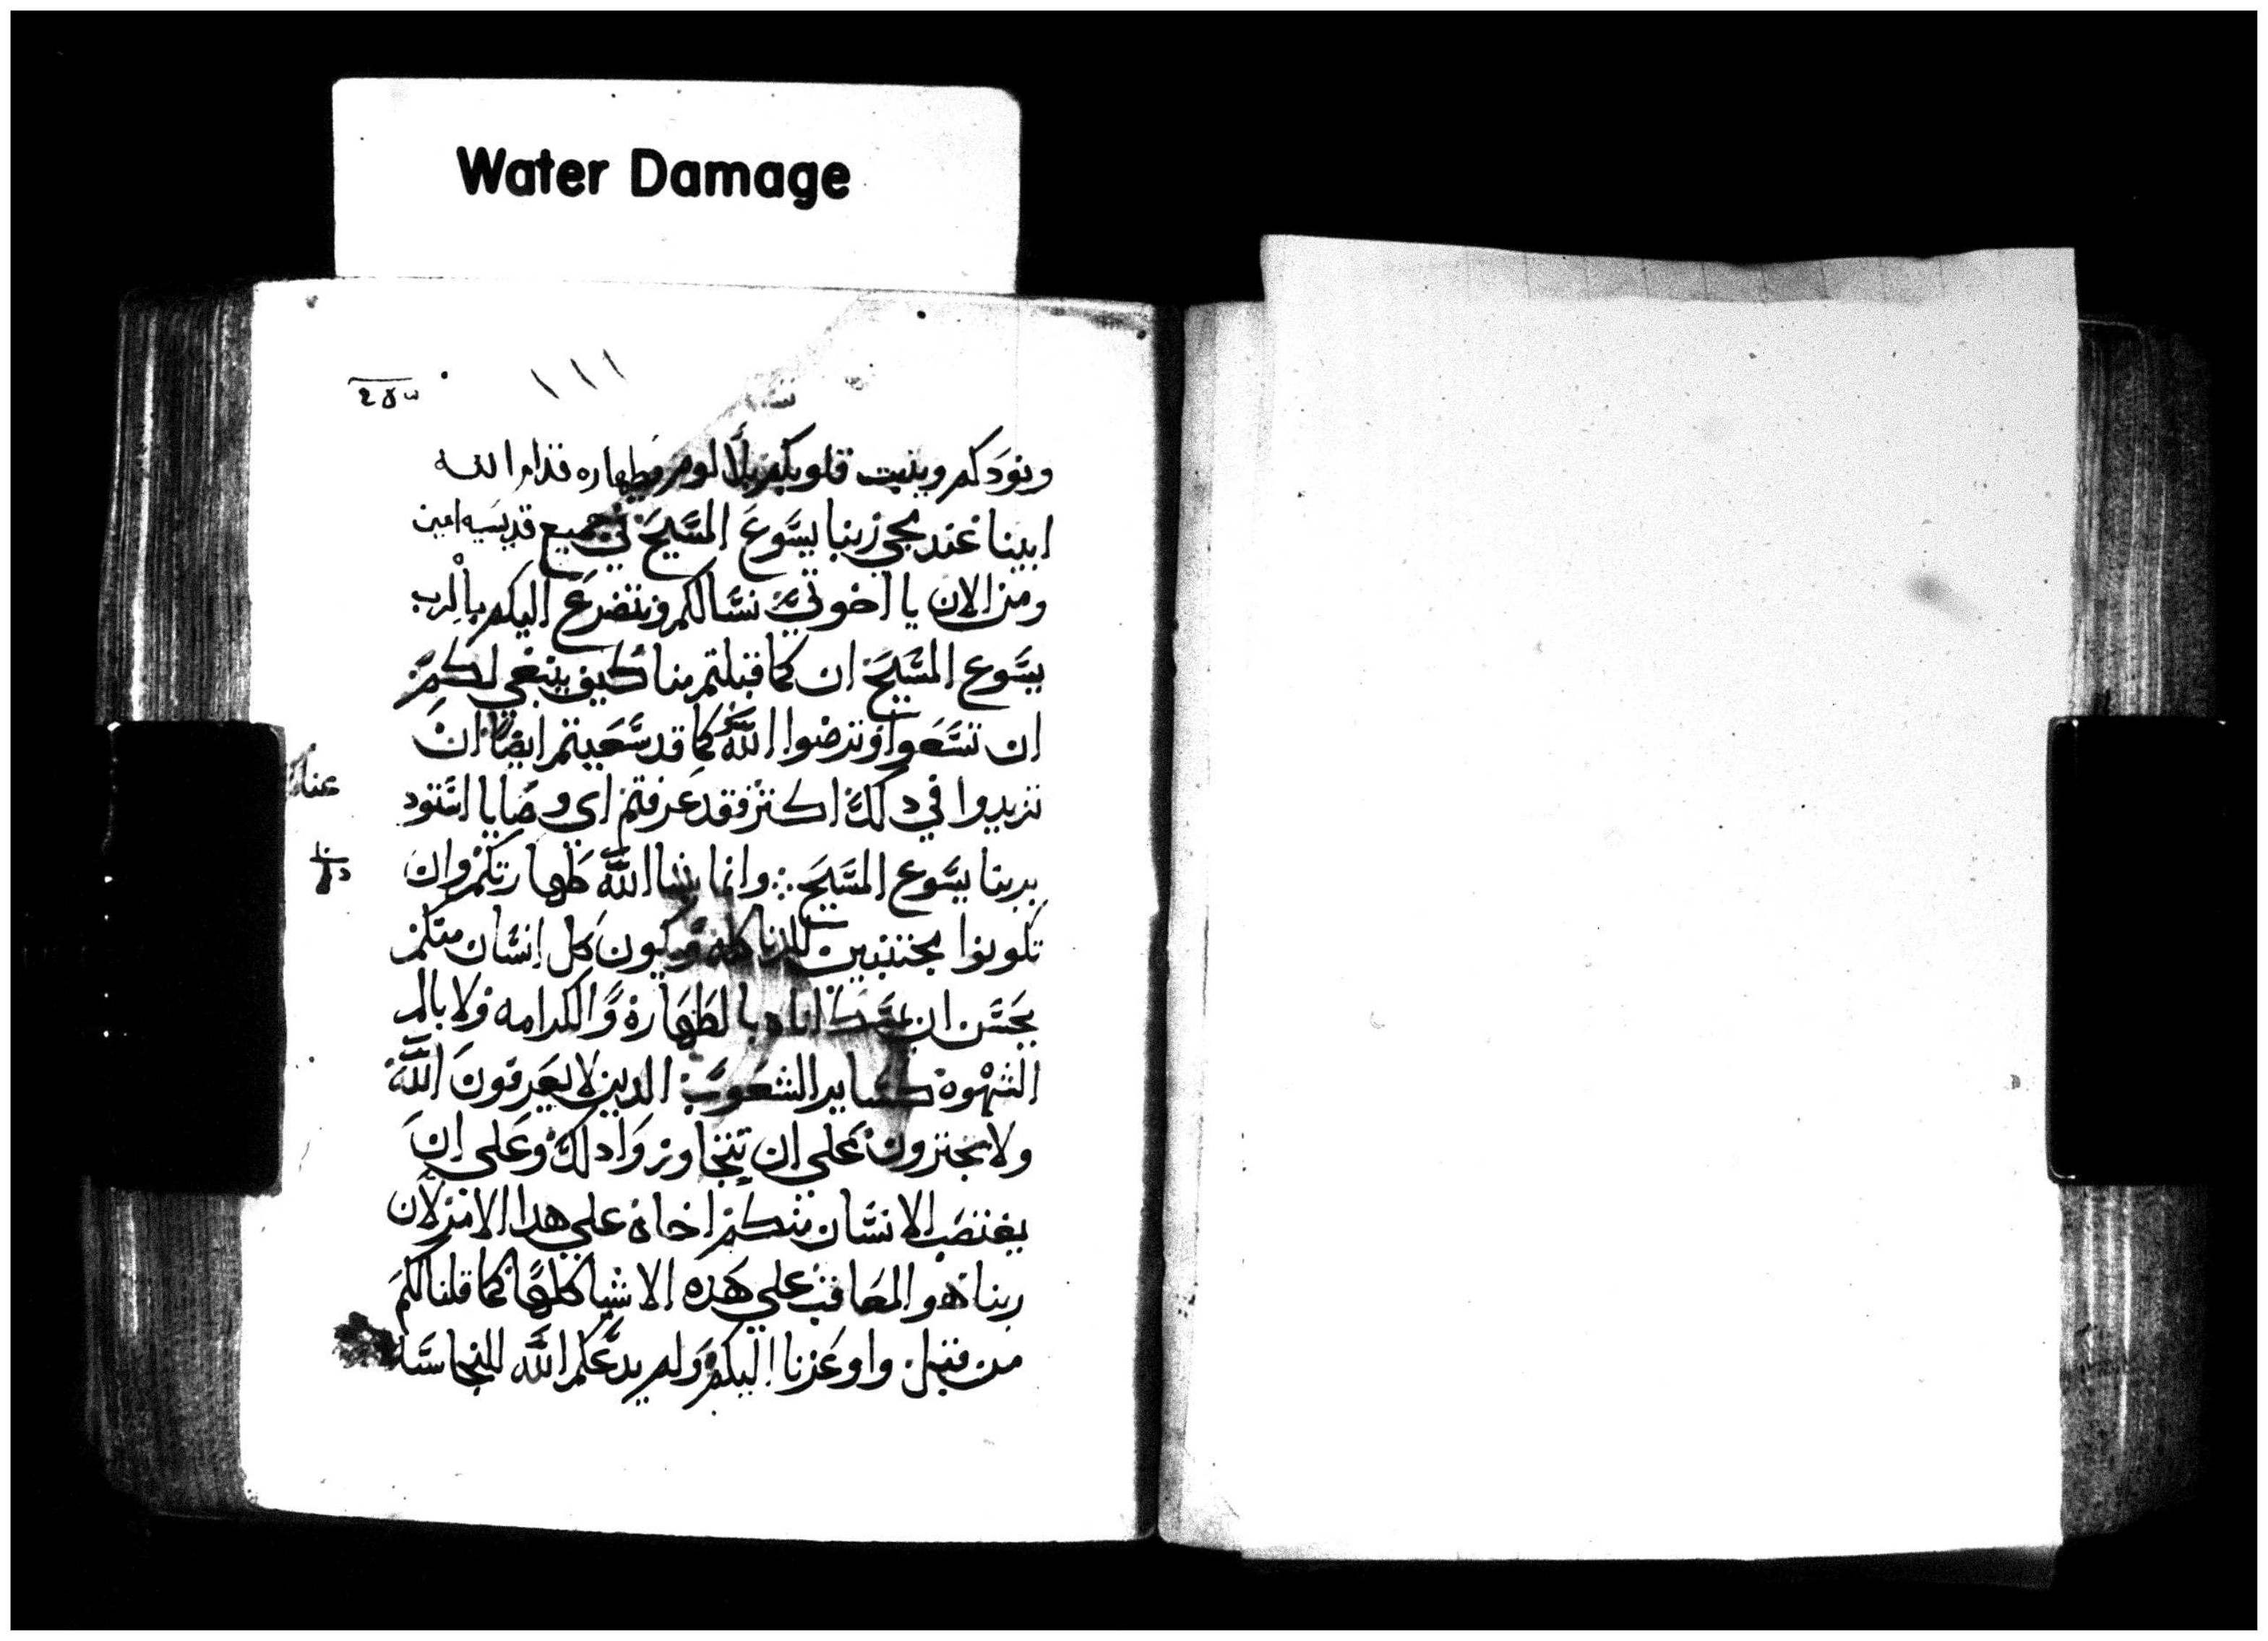 Water Damage
١١١
ونودكم ويثبت قلوبكم بلا لوم وطهاره قدام الله
ابينا عند مجي ربنا يسوع المسيح في جميع قديسيه امين
ومن الان يا اخوتي نسالكم ونتضرع اليكم بالرب
يسوع المسيح ان كما قبلتم منا كيف ينبغي لكم
ان تسعوا وترضوا الله كما قد سعيتم ايضا ان
تزيدوا في دلك اكتر فقد عرفتم اي وصايا استود
بربنا يسوع المسيح وانما يشا الله طهارتكم وان
تكونوا مجتنبين للزنا كله ويكون كل انسان منكم
يحسن ان اناه بالطهارة والكرامه ولا بالم
الشهوه كساير الشعوب الدين لا يعرفون الله
ولا يجترون على ان تتجاوزوا دلك وعلى ان
يغتصب الانسان منكم اخاه علي هدا الامر لان
ربنا هو المعاقب علي هده الاشيا كلها كما قلنا لكم
من قبل واوعزنا اليكم ولم يدعكم الله للنجاسه